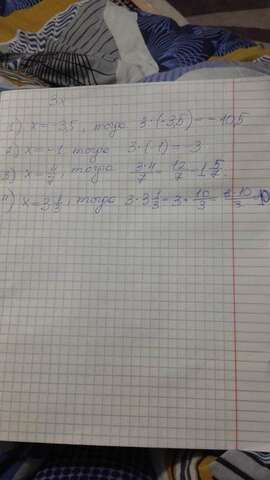 3x
1) x=-3,5, тогда 3·(-3,5)=-10,5
2) x=-1, тогда 3·(-1)=-3
3) x=4/7, тогда 3·4/7=12/7=1 5/7.
4) x=3 1/3, тогда 3·3 1/3=3·10/3=3·10/3=10